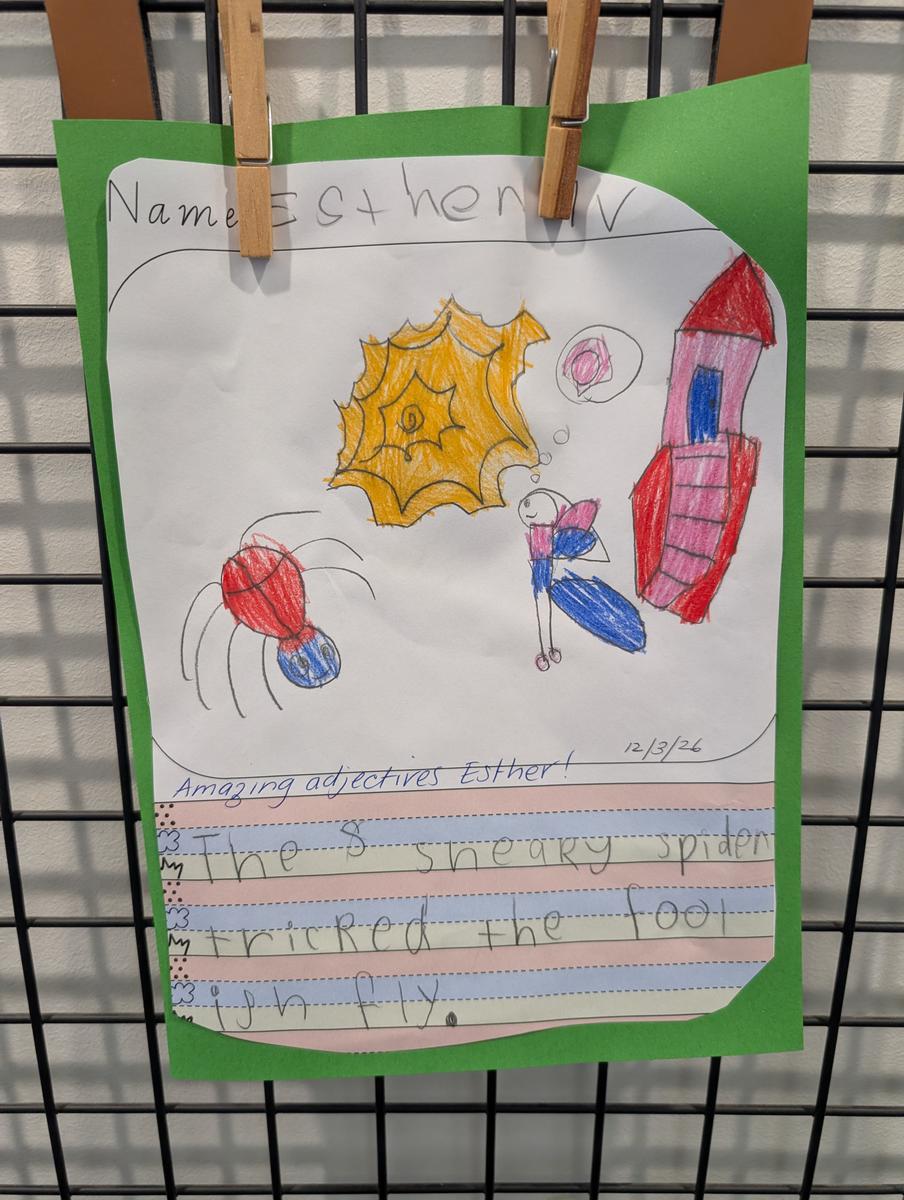 Name Esther IV
12/3/26
Amazing adjectives Esther!
The 8 sneaky spider
tricked the fool
ish fly.